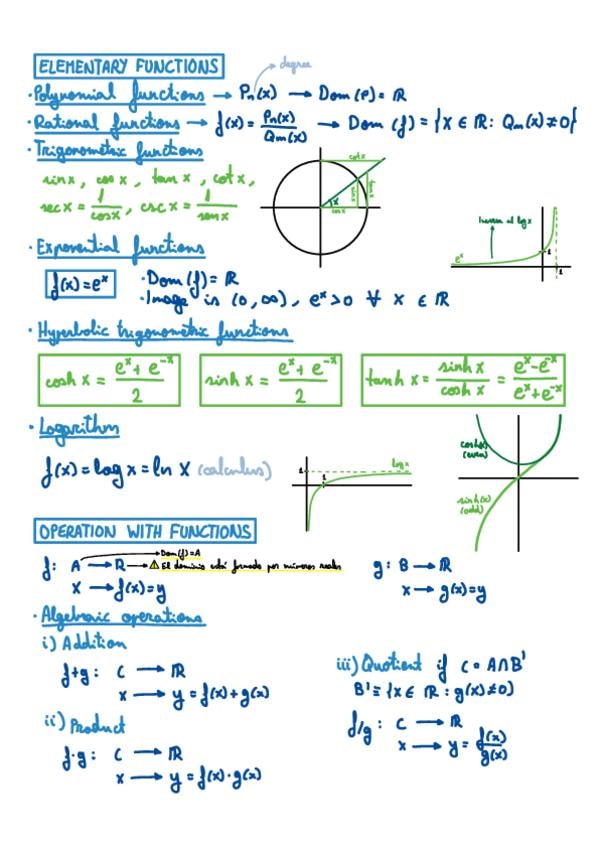 ELEMENTARY FUNCTIONS
degree
· Polynomial functions → Pn(x) → Dom (P) = ℝ
· Rational functions → f(x) = Pn(x)/Qm(x) → Dom (f) = {x ∈ ℝ: Qm(x) ≠ 0}
· Trigonometric functions
sin x, cos x, tan x, cot x,
sec x = 1/cos x, csc x = 1/sen x
cot x
x
sin x
tan x
cos x
· Exponential functions
f(x) = eˣ
· Dom (f) = ℝ
· Image is (0, ∞), eˣ > 0 ∀ x ∈ ℝ
eˣ
1
1
· Hyperbolic trigonometric functions
cosh x = (eˣ + e⁻ˣ)/2
sinh x = (eˣ + e⁻ˣ)/2
tanh x = sinh x/cosh x = (eˣ - e⁻ˣ)/(eˣ + e⁻ˣ)
· Logarithm
f(x) = log x = ln x (calculus)
1
1
log x
cosh(x)
(even)
sinh(x)
(odd)
OPERATION WITH FUNCTIONS
Dom(f) = A
f: A → ℝ → ⚠ El dominio está formado por números reales
x → f(x) = y
g: B → ℝ
x → g(x) = y
· Algebraic operations
i) Addition
f+g: C → ℝ
x → y = f(x) + g(x)
ii) Product
f·g: C → ℝ
x → y = f(x) · g(x)
iii) Quotient if C = A ∩ B'
B' ≡ {x ∈ ℝ : g(x) ≠ 0}
f/g: C → ℝ
x → y = f(x)/g(x)